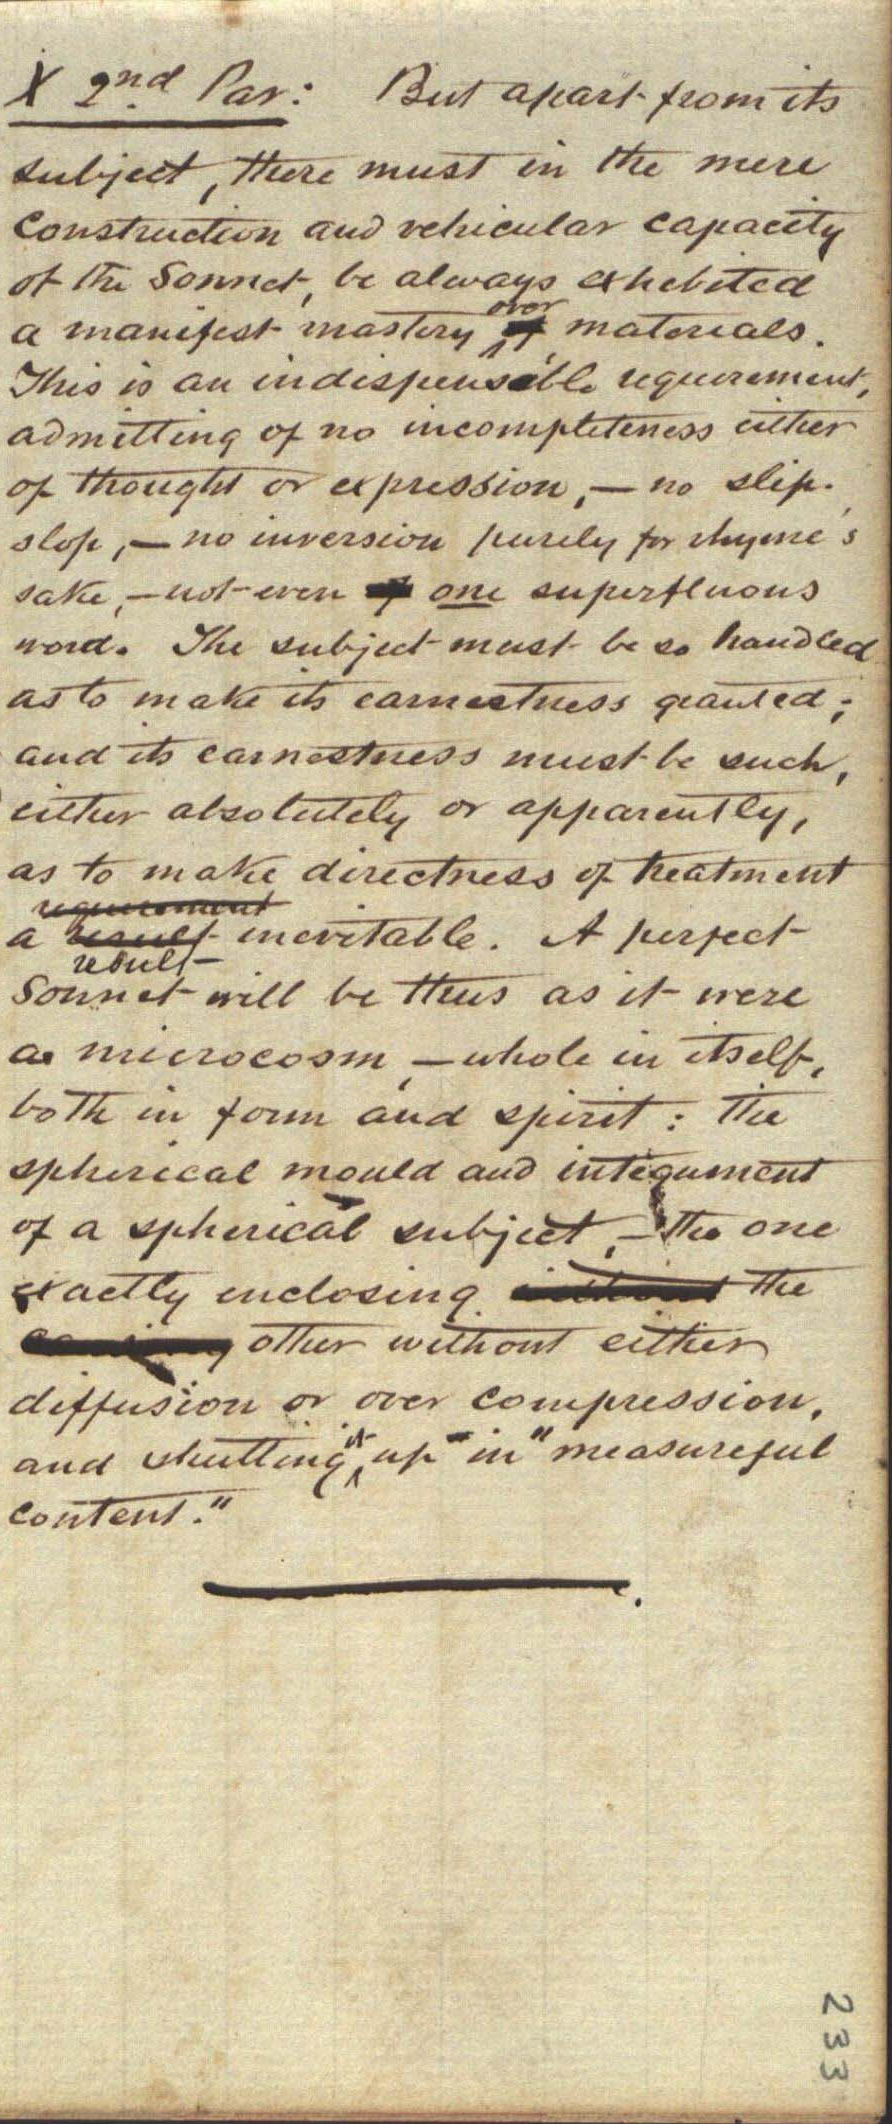 X 2nd Par: But apart from its
subject, there must in the mere
construction and vehicular capacity
of the Sonnet, be always exhibited
over
a manifest mastery of materials.
This is an indispensible requirement,
admitting of no incompleteness either
of thought or expression, — no slip-
slop, — no inversion purely for rhyme's
sake, — not even one superfluous
word. The subject must be so handled
as to make its earnestness granted;
and its earnestness must be such,
either absolutely or apparently,
as to make directness of treatment
requirement
a result inevitable. A perfect
result
Sonnet will be thus as it were
a microcosm, — whole in itself,
both in form and spirit: the
spherical mould and integument
of a spherical subject, — the one
exactly enclosing without the
other without either
diffusion or over compression,
it
and shutting up in "measureful
content."
233